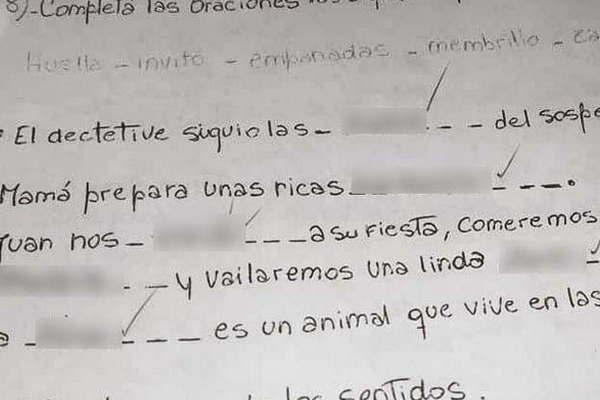 8)-Completa las Oraciones
Huella - invito - empanadas - membrillo -
El dectetive siguio las - - - del
Mamá prepara unas ricas - - -.
Juan nos - - - - a su fiesta, comeremos
- - y vailaremos una linda -
- - - - es un animal que vive en las
los sentidos.